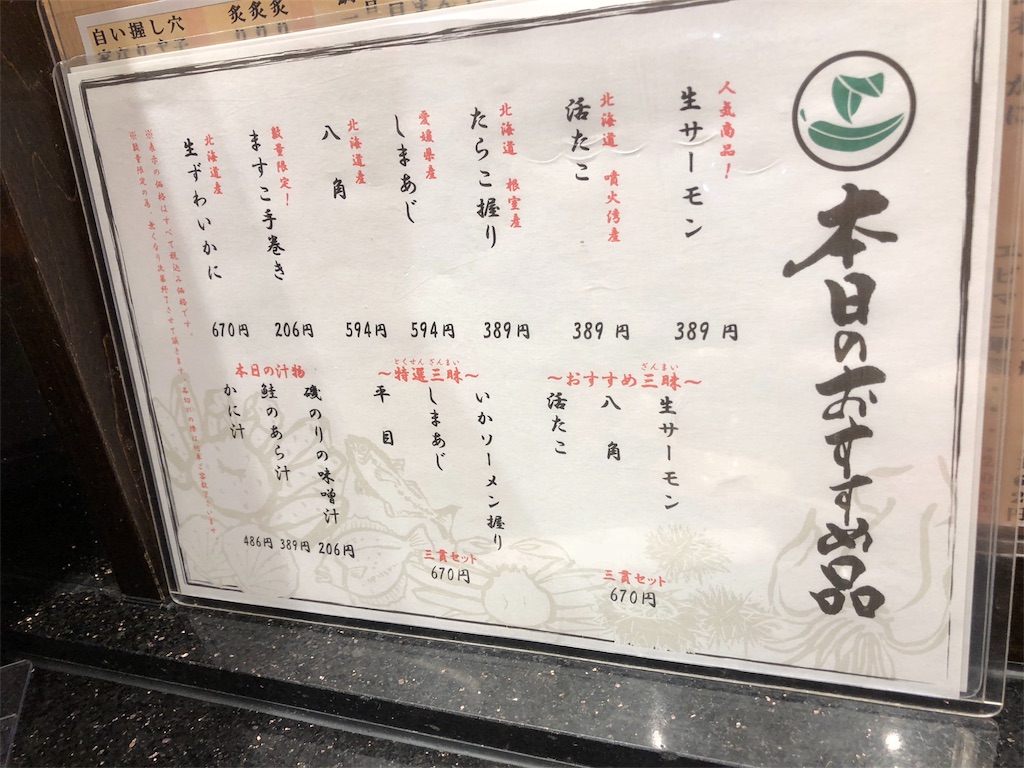 本日のおすすめ品
人気商品！
生サーモン
389円
北海道 噴火湾産
活たこ
389円
北海道 根室産
たらこ握り
389円
愛媛県産
しまあじ
594円
北海道産
八角
594円
数量限定！
ますこ手巻き
206円
北海道産
生ずわいかに
670円
※表示の価格はすべて税込み価格です。
～おすすめ三昧～
ざんまい
生サーモン
八角
活たこ
三貫セット
670円
～特選三昧～
とくせん ざんまい
いかソーメン握り
しまあじ
平目
三貫セット
670円
本日の汁物
磯のりの味噌汁
206円
鮭のあら汁
389円
かに汁
486円